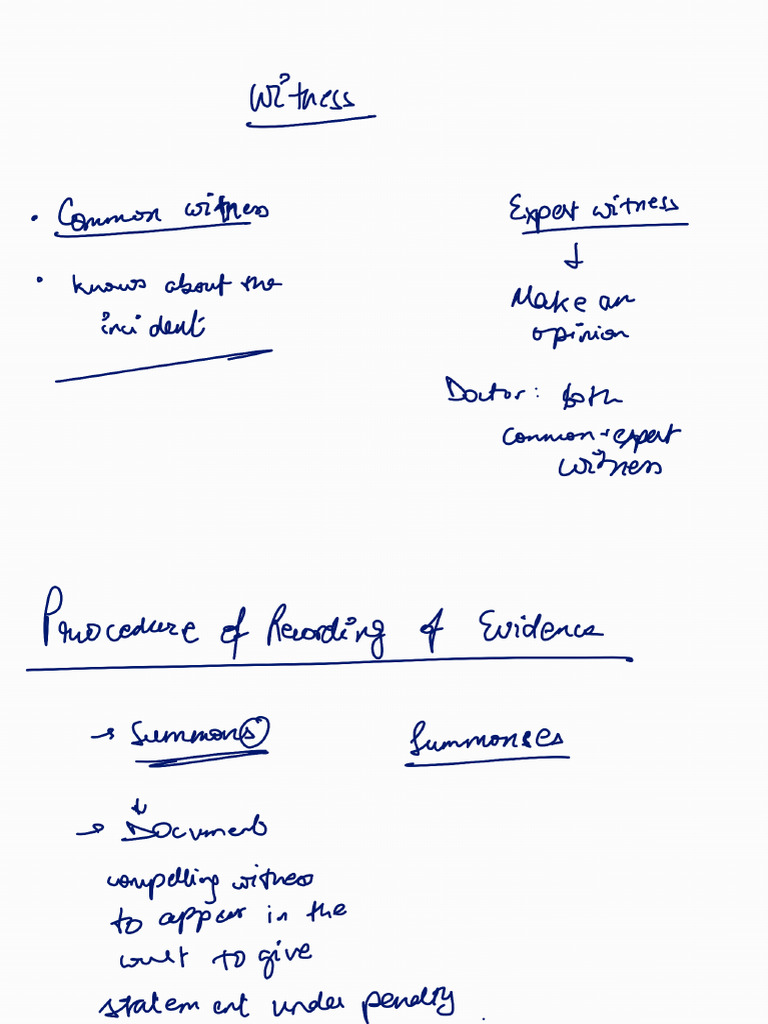 Witness
• Common witness
• knows about the
incident
Expert witness
↓
Make an
opinion
Doctor: both
common + expert
witness
Procedure of Recording of Evidence
→ Summons
Summonses
↓
→ Document
compelling witness
to appear in the
court to give
statement under penalty.